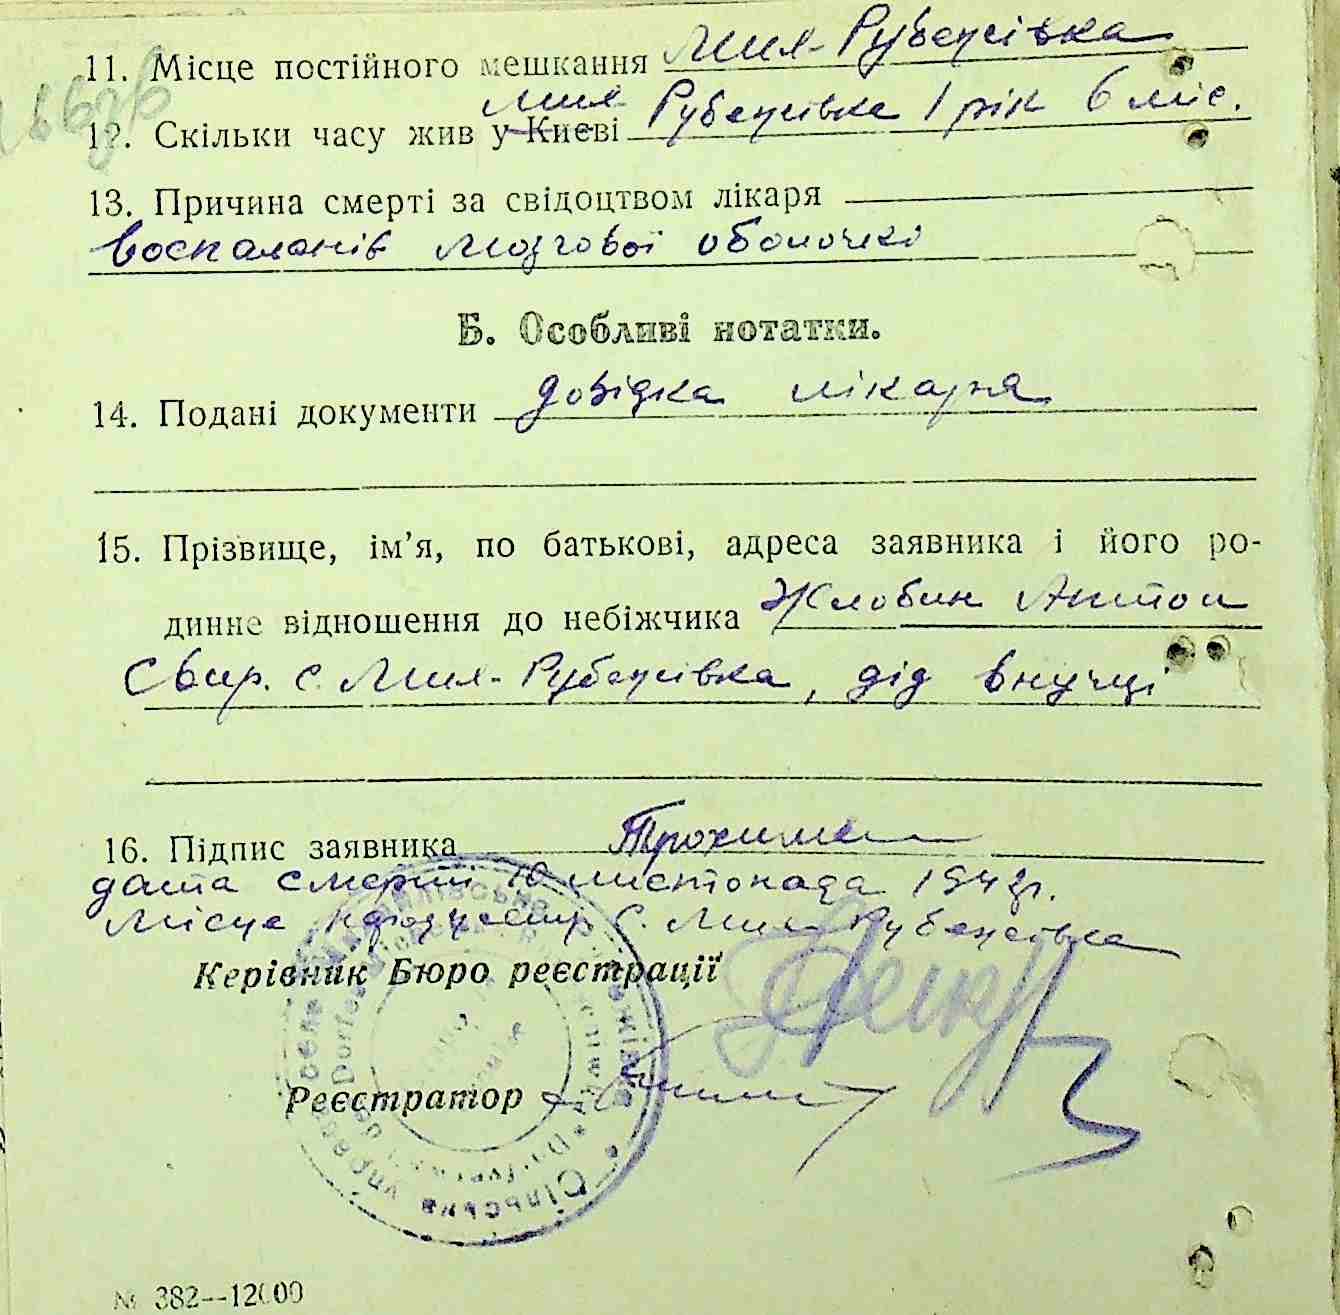 11. Місце постійного мешкання Мих-Рубежівка
Мих-
12. Скільки часу жив у Києві Рубежівка 1 рік 6 міс.
13. Причина смерті за свідоцтвом лікаря
Воспаленів мозгової оболочкі
Б. Особливі нотатки.
14. Подані документи довідка лікаря
15. Прізвище, ім’я, по батькові, адреса заявника і його ро-
динне відношення до небіжчика Жлобин Антон
Свир. с. Мих-Рубежівка, дід внучці
16. Підпис заявника
дата смерті 10 листопада 1942р.
Місце с. Мих-Рубежівка
Керівник Бюро реєстрації
Реєстратор
Сільська управа
№ 382--12000